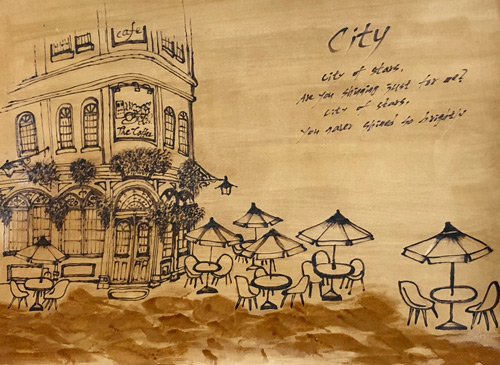 cafe
The Coffee
City
city of stars.
Are You shining Just for me?
city of stars.
You never shined so brightly